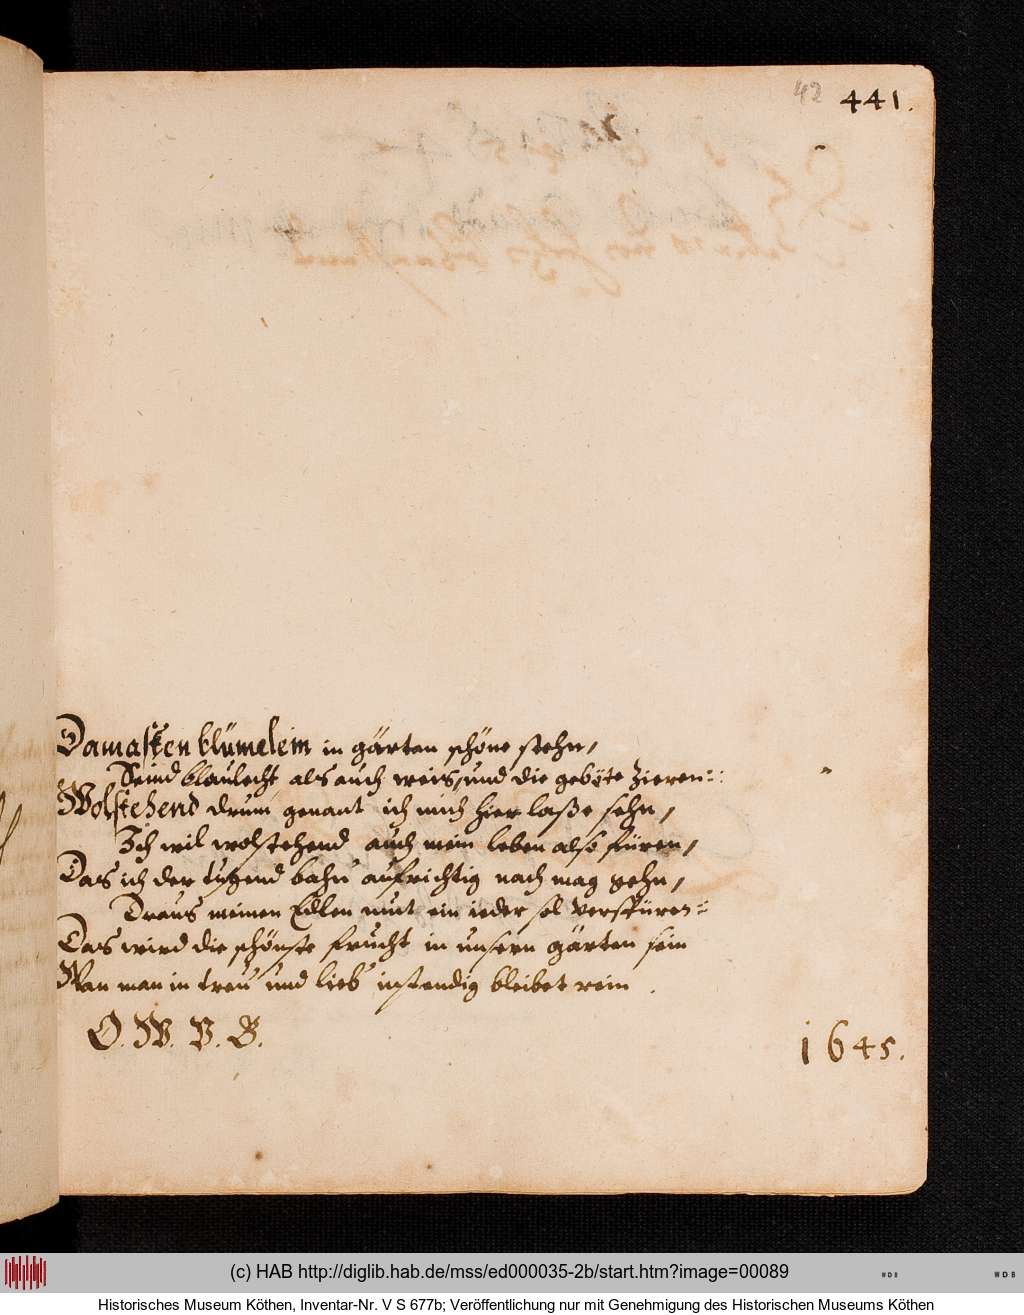 42 441.
Damasken blümelein in gärten schöne stehn,
Seind blaulecht als auch weis, und die gebÿte Zieren::
Wolstehend drum genant ich mich hier laße sehn,
Ich wil wolstehend auch mein leben also füren,
Das ich der tugend bahn aufrichtig nach mag gehn,
Draus meinen Edlen mut ein ieder sol verspüren::
Das wird die schönste frucht in unsern gärten sein
Wan man in treu und lieb instendig bleibet rein.
O. W. V. B.
1645.
(c) HAB http://diglib.hab.de/mss/ed000035-2b/start.htm?image=00089
WDB
WDB
Historisches Museum Köthen, Inventar-Nr. V S 677b; Veröffentlichung nur mit Genehmigung des Historischen Museums Köthen